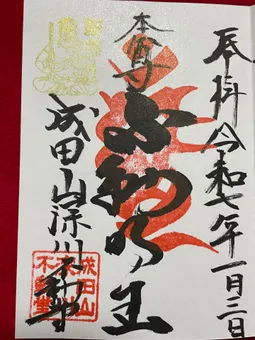 奉拝 令和七年一月三日
本尊
不動明王
成田山深川不動尊
成田山
不動堂